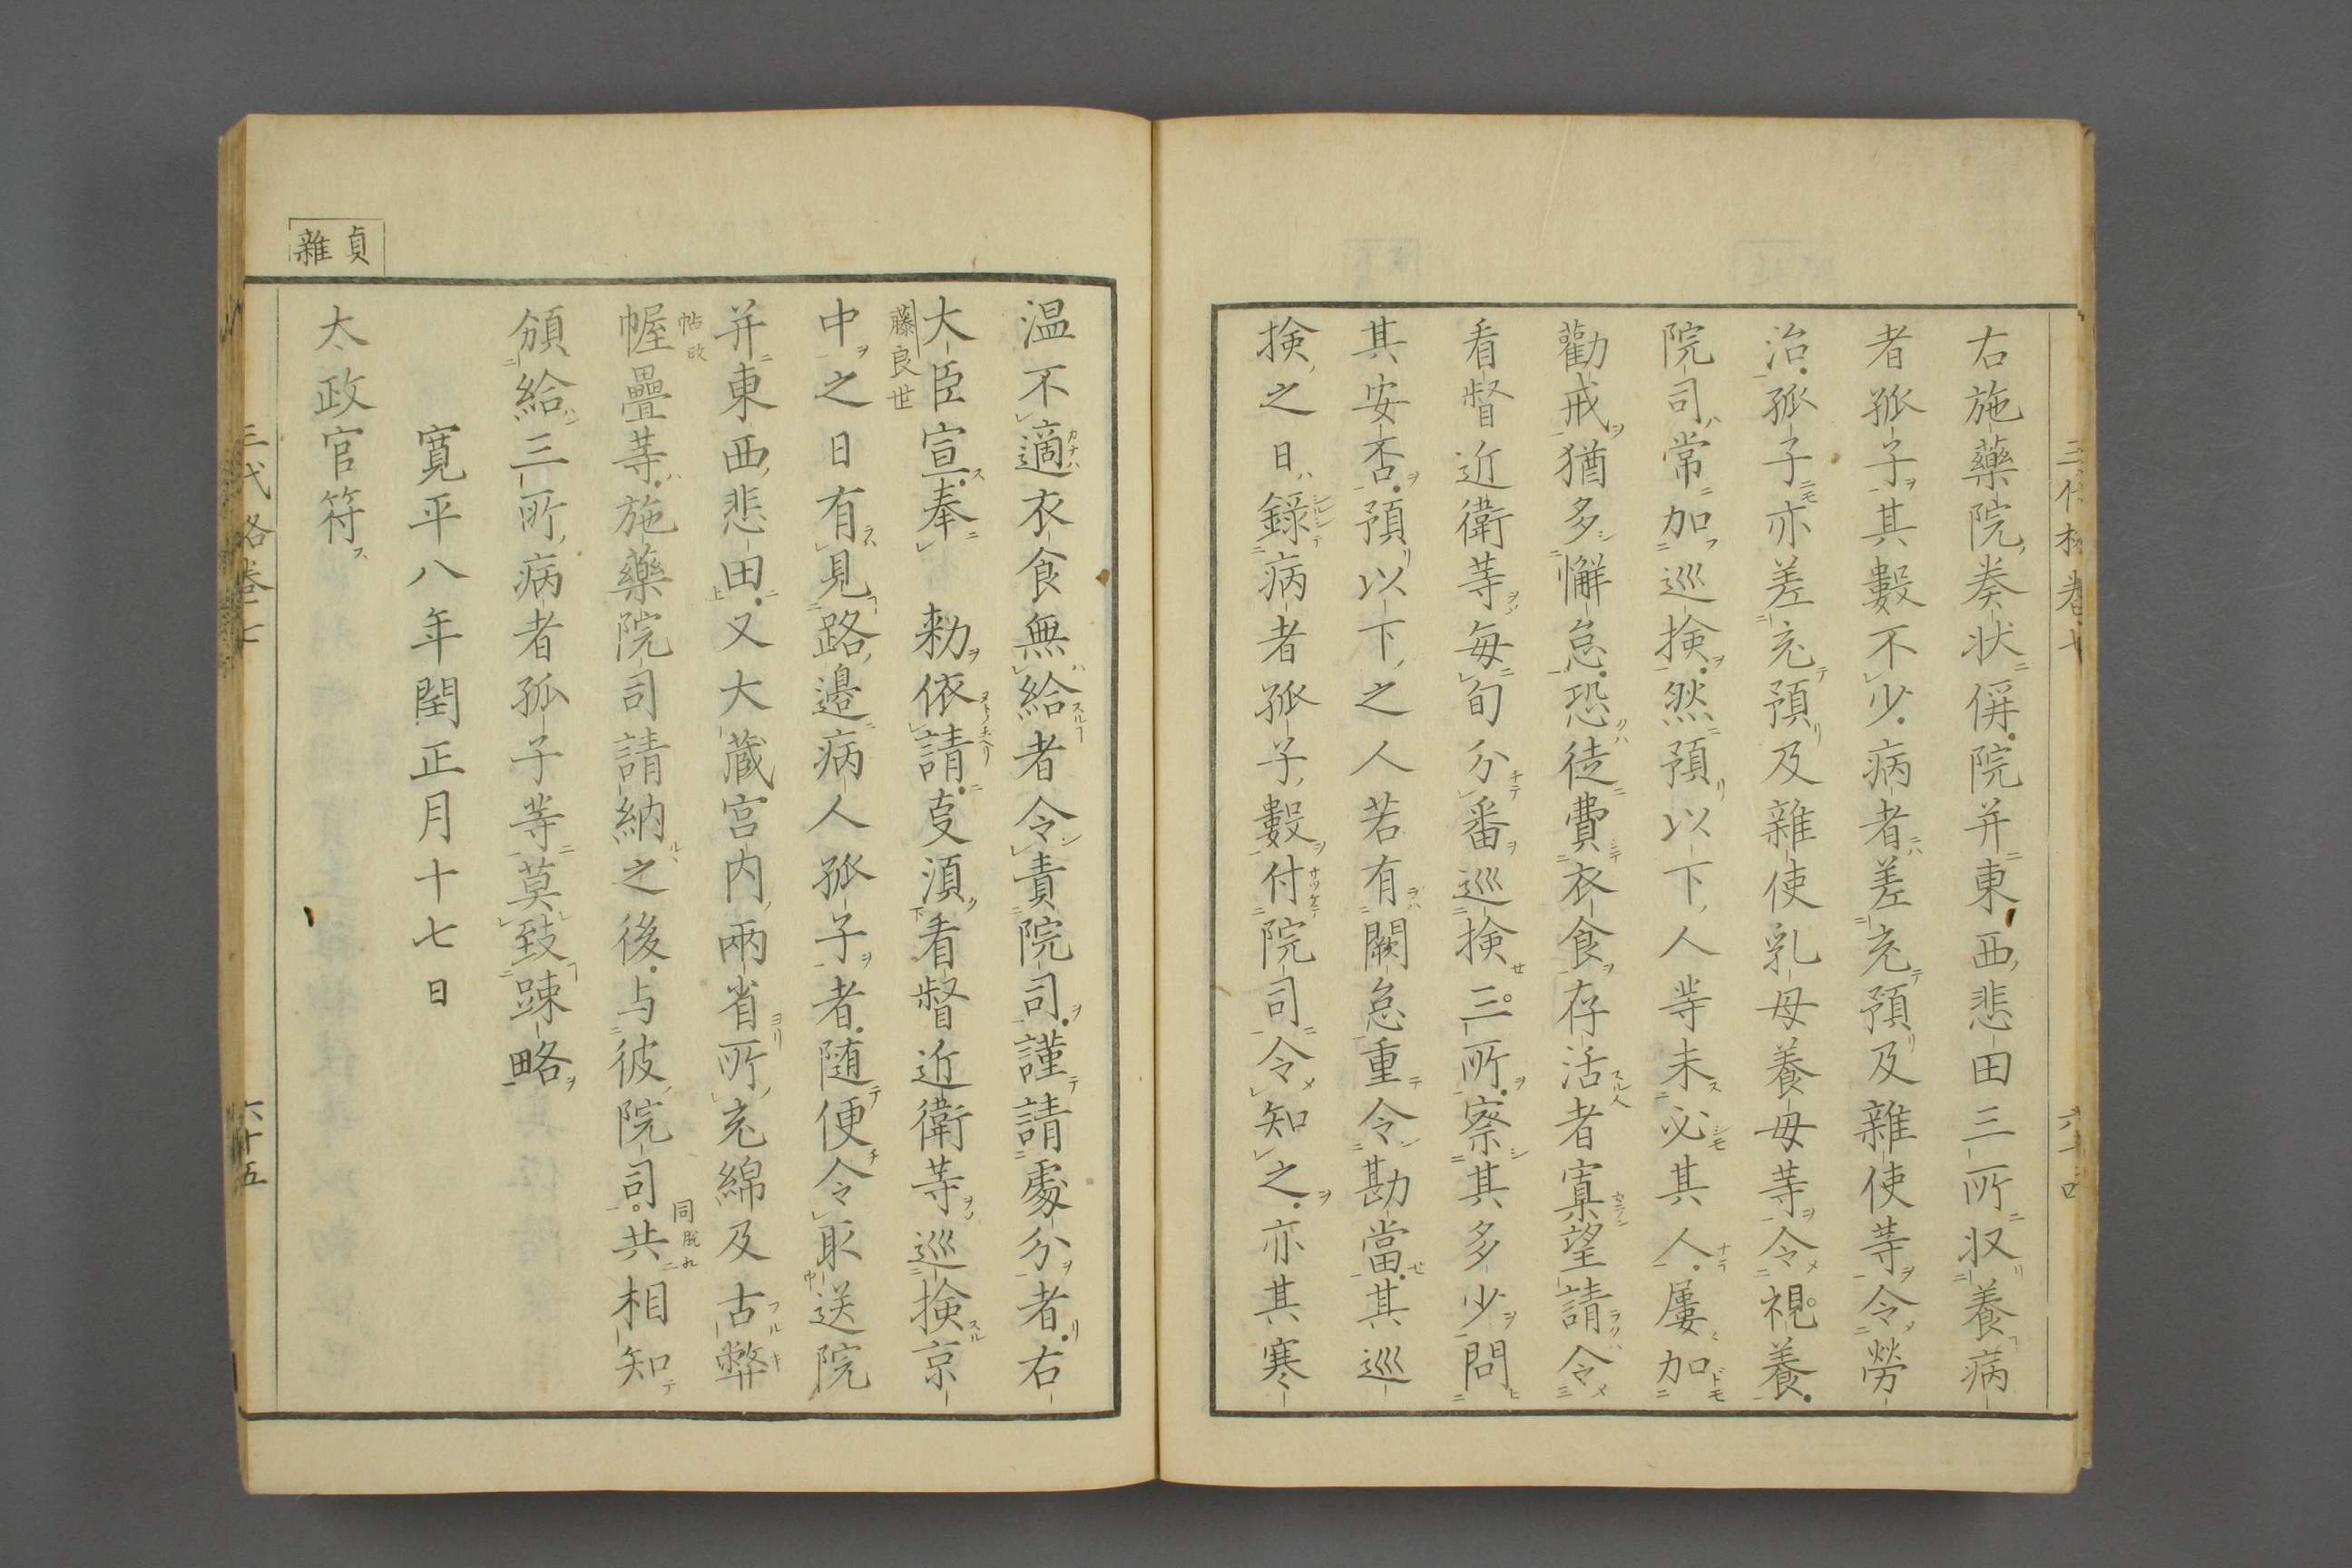 右施藥院奏状偁院并東西悲田三所収養病
者孤子其數不少病者差充預及雜使等令勞
治孤子亦差充預及雜使乳母養母等令視養
院司常加巡撿然預以下人等未必其人屢加
勸戒猶多懈怠恐徒費衣食存活者寡望請令
看督近衛等毎旬分番巡撿三所察其多少問
其安否預以下之人若有闕怠重令勘當其巡
撿之日錄病者孤子數付院司令知之亦其寒
温不適衣食無給者令責院司謹請處分者右
大臣宣奉　勅依請㕝須看督近衛等巡撿京
藤良世
中之日有見路邊病人孤子者随便令取送院
并東西悲田又大蔵宮内兩省所充綿及古弊
幄疊等施藥院司請納之後与彼院司共相知
頒給三所病者孤子等莫致踈略
寛平八年閏正月十七日
貞
雜
太政官符
三代格卷十
六十五